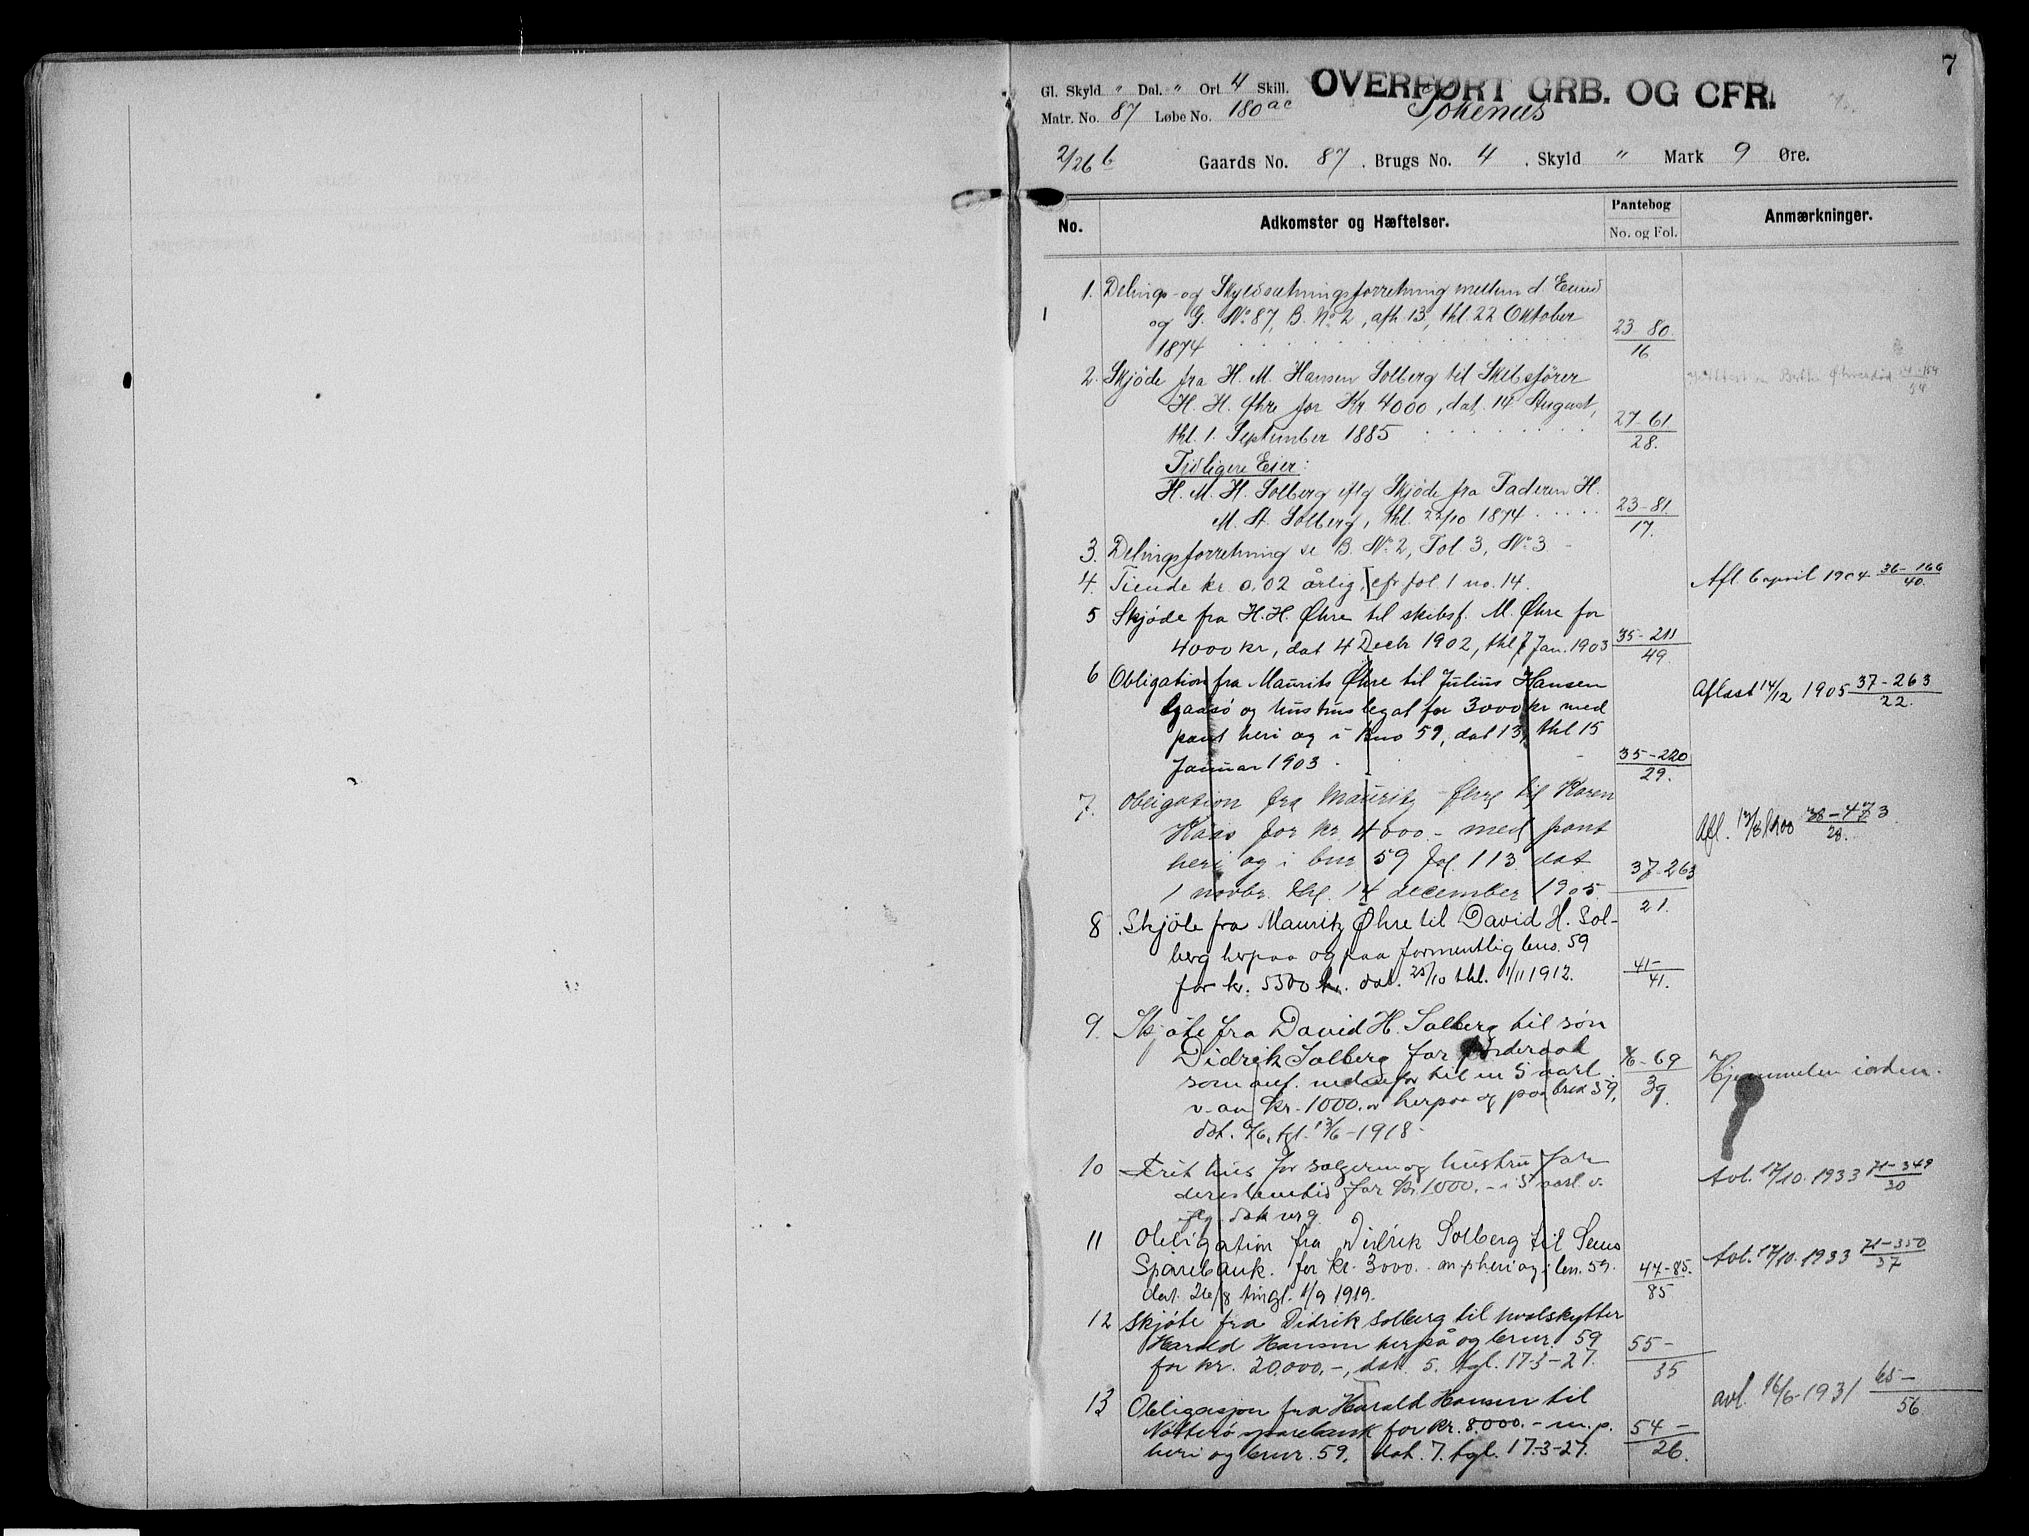 7
Gl. Skyld " Dal. " Ort 4 Skill. OVERFØRT GRB. OG CFR.
Matr. No. 87 Løbe No. 180 ac Tokenæs
2/26 b Gaards No. 87. Brugs No. 4. Skyld " Mark 9 Øre.
No. Adkomster og Hæftelser. Pantebog No. og Fol. Anmærkninger.
1. Delings- og Skyldsætningsforretning mellem d. Eiend
1 og G. No 87, B. No 2, afh. 13, thl. 22 Oktober 23-80
1874 16
2. Skjøde fra H. M. Hansen Solberg til Skibsfører
H. H. Øhre for Kr 4000, dat. 14 August, 27-61
thl. 1. September 1885 28.
Tidligere Eier:
H. M. H. Solberg iflg Skjøde fra Faderen H. 23-81
M. A. Solberg, thl. 22/10 1874 17.
3. Delingsforretning se B. No 2, Fol. 3, No 3
4. Tiende kr 0,02 årlig, cfr fol 1 no. 14. Afl. 6 april 1904 36-166/40.
5 Skjøde fra H. H. Øhre til skibsf. M. Øhre for
4000 kr, dat 4 Decbr 1902, thl 7 Jan. 1903 35-211/49.
6 Obligation fra Maurits Øhre til Julius Hansen Aflæst 14/12 1905 37-263/22.
Gaasø og hustrus legat for 3000 kr med
pant heri og i bno 59, dat 13, thl 15
Januar 1903. 35-220/29.
7. Obligation fra Mauritz Øhre til Karen
Hass for kr 4000 - med pant Afl.
heri og i bnr 59 fol. 113 dat
1 novbr. thl. 14 december 1905 37-263/21.
8. Skjøte fra Mauritz Øhre til David H. Sol-
berg herpaa og paa formentlig bno. 59
for kr. 5500 kr. dat. 25/10 thl. 1/11 1912. 41-/41.
9. Skjøte fra David H. Solberg til søn
Didrik Solberg for föderaad 16-69/39. Hjemmelen iorden.
som anf. nedenfor til en 5 aarl.
v. an kr. 1000.- herpaa og paa bno 59,
dat. 6/6, tgl. 13/6-1918-
10 Frit hus for sælgeren og hustru for Avl. 17/10. 1933 71-349/30
deres levetid for kr. 1000.- i 5 aarl. v.
flg. dok. nr 9.
11 Obligation fra Didrik Solberg til Sems Avl. 17/10. 1933 71-350/37
Sparebank. for kr. 3000. m. p heri og i bn. 59. 47-85./85
dat. 26/8 tingl. 1/9 1919.
12 Skjøte fra Didrik Solberg til hvalskytter
Harald Hansen herpå og brnr. 59 55-
for kr. 20.000,-, dat. 5. tgl. 17-3-27. 35
13 Obligasjon fra Harald Hansen til avl. 16/6-1931 65-/56
Nøtterø sparebank for kr. 8.000.- m. p. 54-
heri og brnr. 59, dat. 7. tgl. 17-3-27. 26.